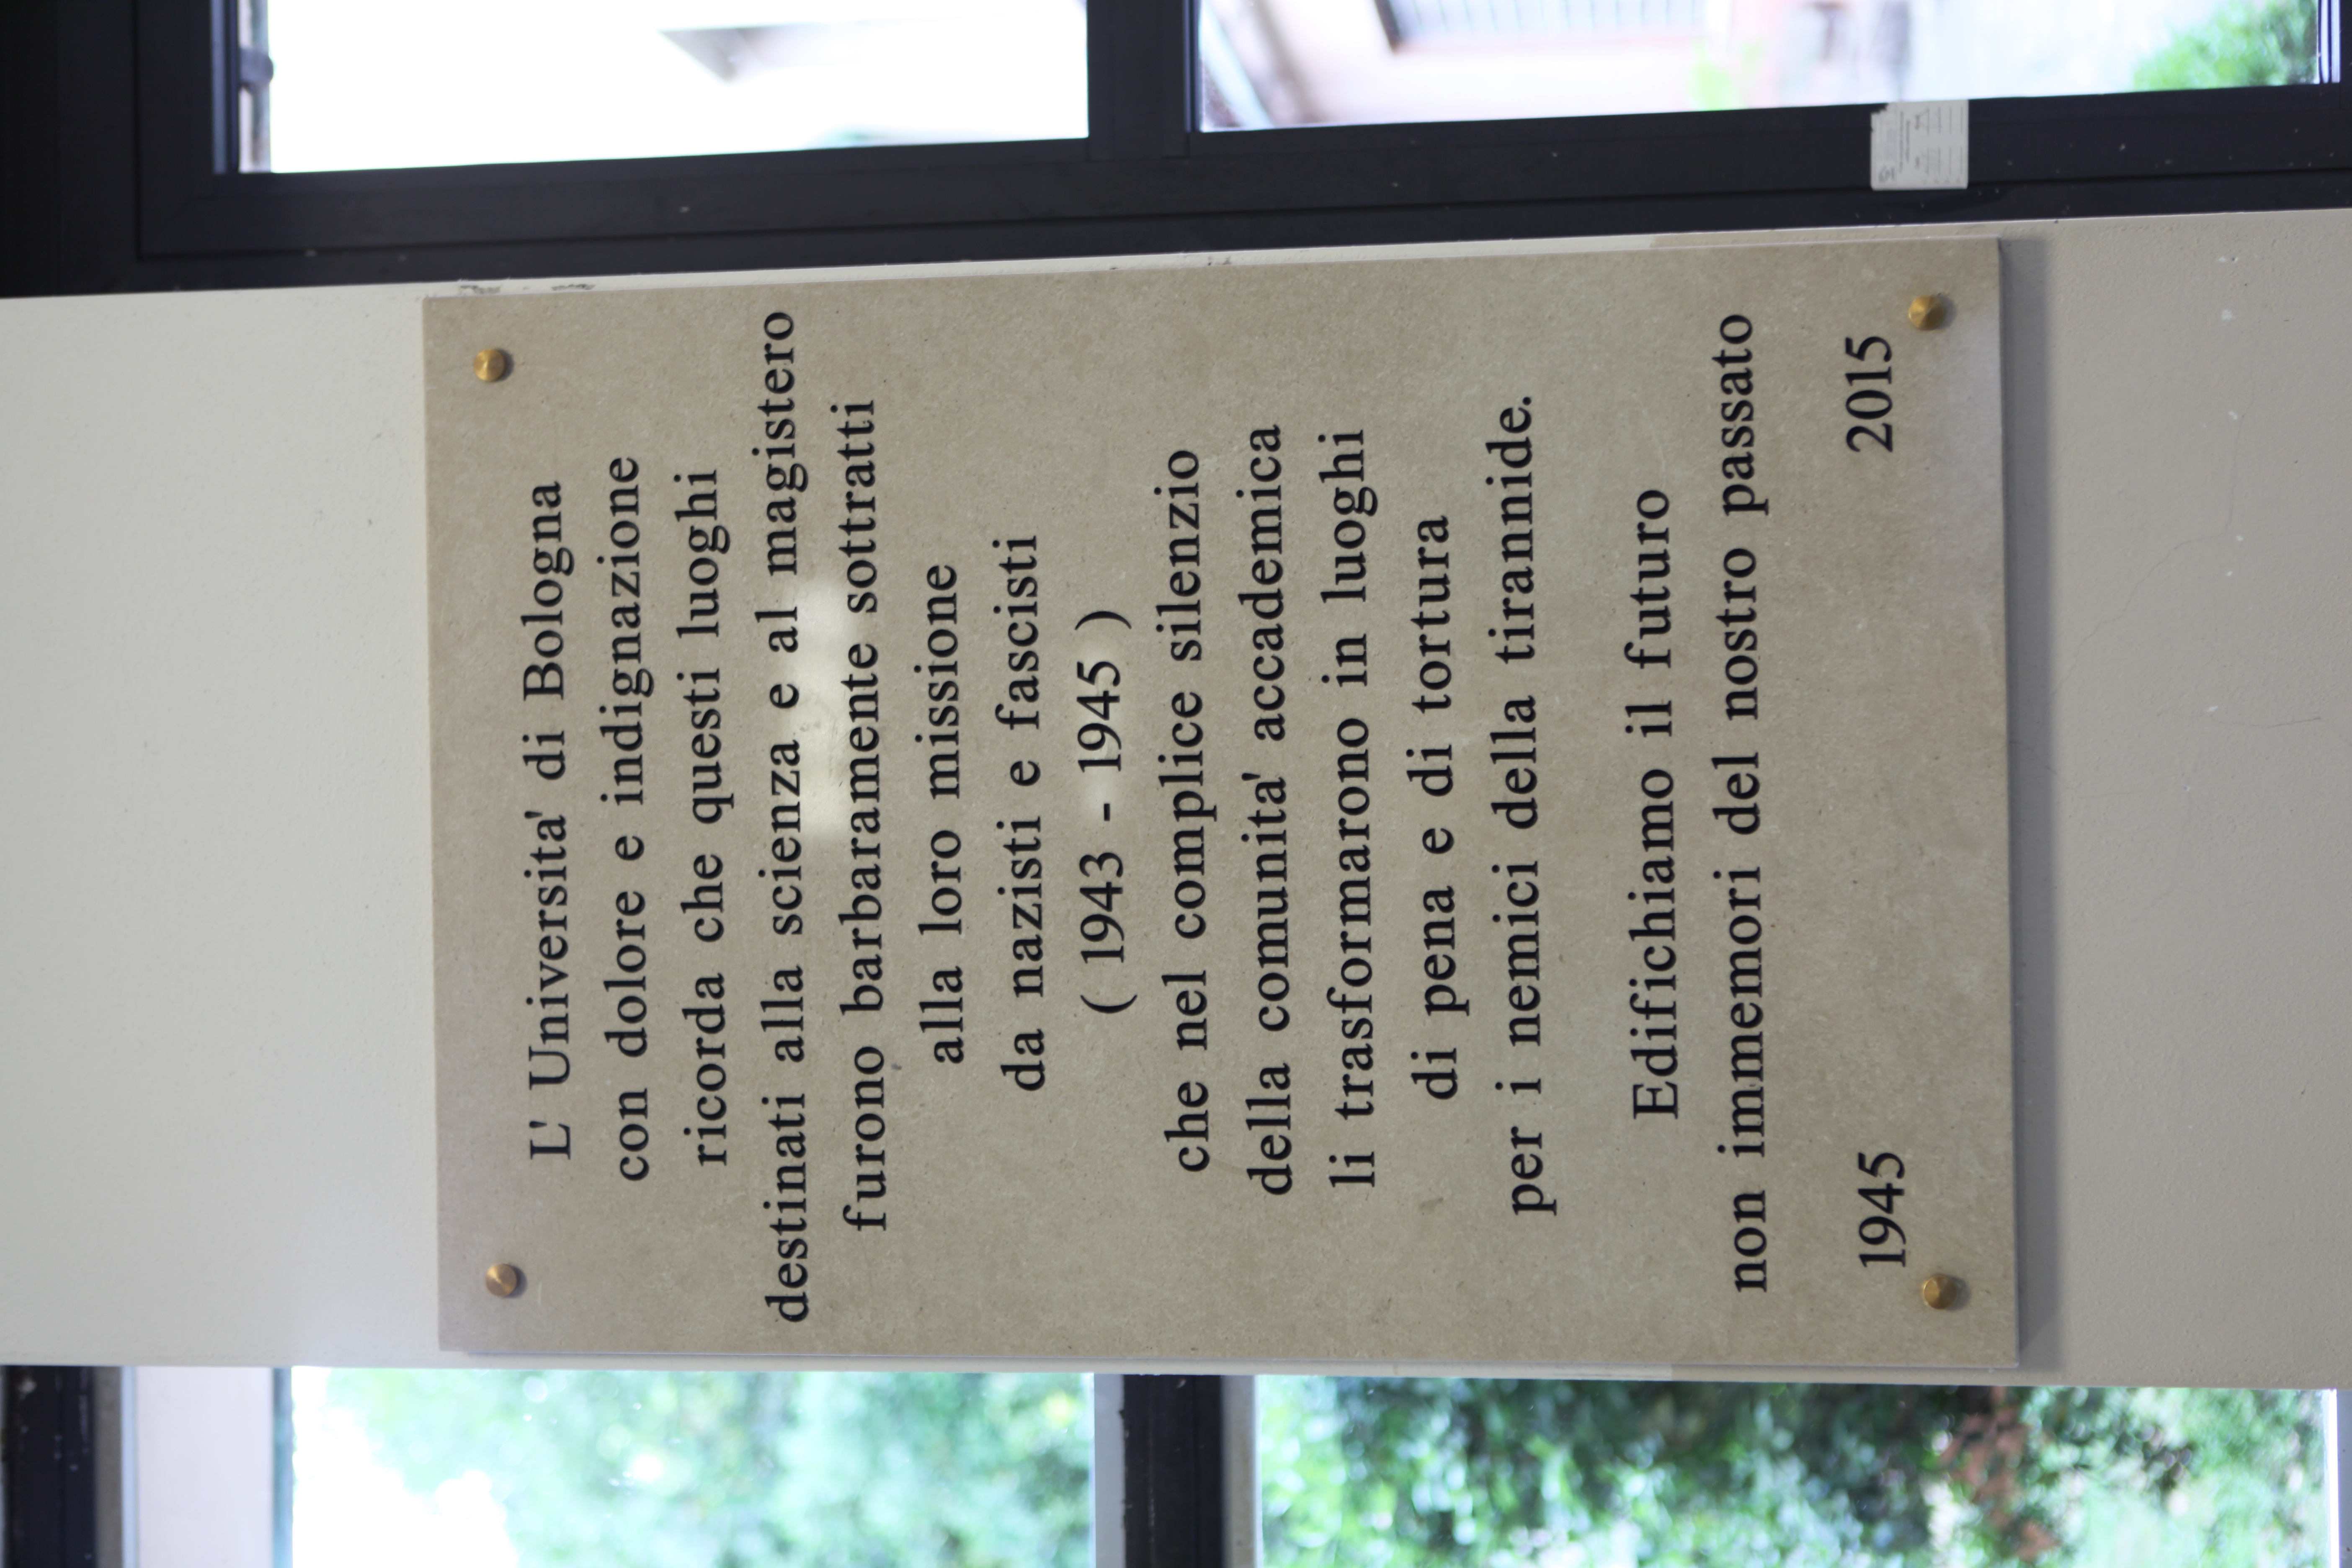 L' Universita' di Bologna
con dolore e indignazione
ricorda che questi luoghi
destinati alla scienza e al magistero
furono barbaramente sottratti
alla loro missione
da nazisti e fascisti
( 1943 - 1945 )
che nel complice silenzio
della comunita' accademica
li trasformarono in luoghi
di pena e di tortura
per i nemici della tirannide.
Edifichiamo il futuro
non immemori del nostro passato
1945 2015